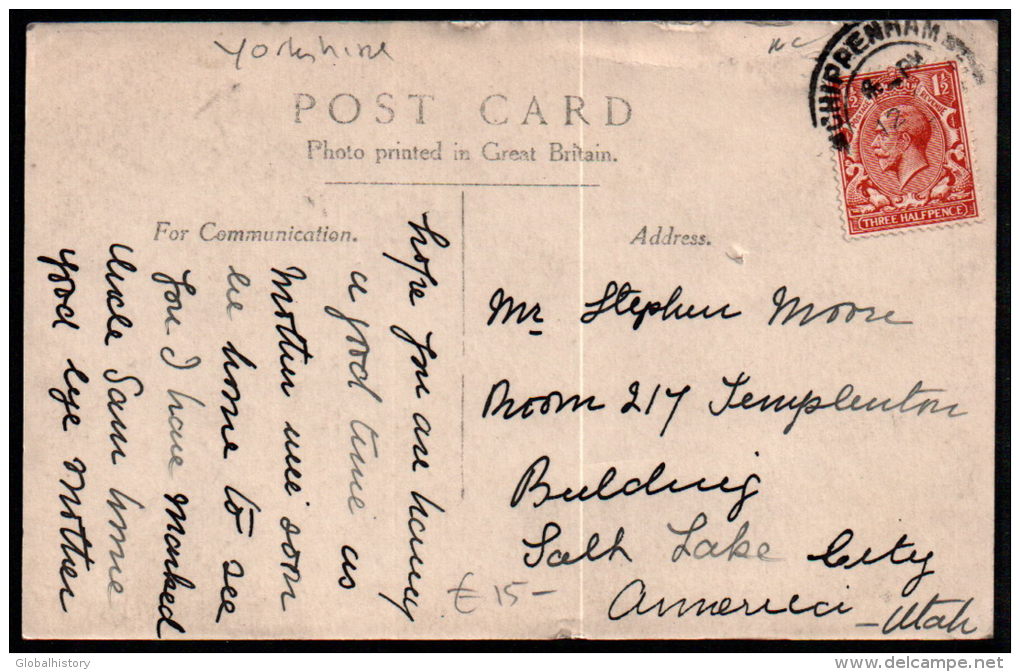 Yorkshire
POST CARD
Photo printed in Great Britain.
For Communication.
Address.
CHIPPENHAM
PM
12
1½
POSTAGE REVENUE
THREE HALFPENCE
hope you are having
a good time as
Mother will soon
be home to see
you I have marked
Uncle Sam home
good bye Mother
Mr Stephen Moore
Room 217 Templeton
Building
Salt Lake City
America
-Utah
€ 15-
Globalhistory
delcampe.net